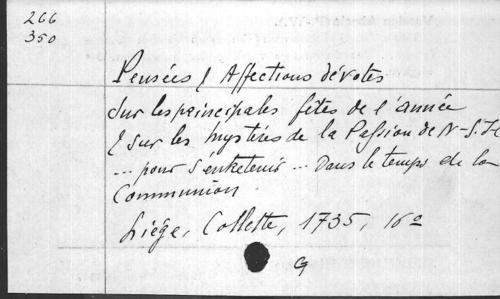 266
350
Pensées & Affections dévotes
sur les principales fêtes de l'année
& sur les mystères de la Passion de N-S. J C
... pour s'entretenir ... dans le temps de la
Communion.
Liége, Collette, 1735, 16°
G